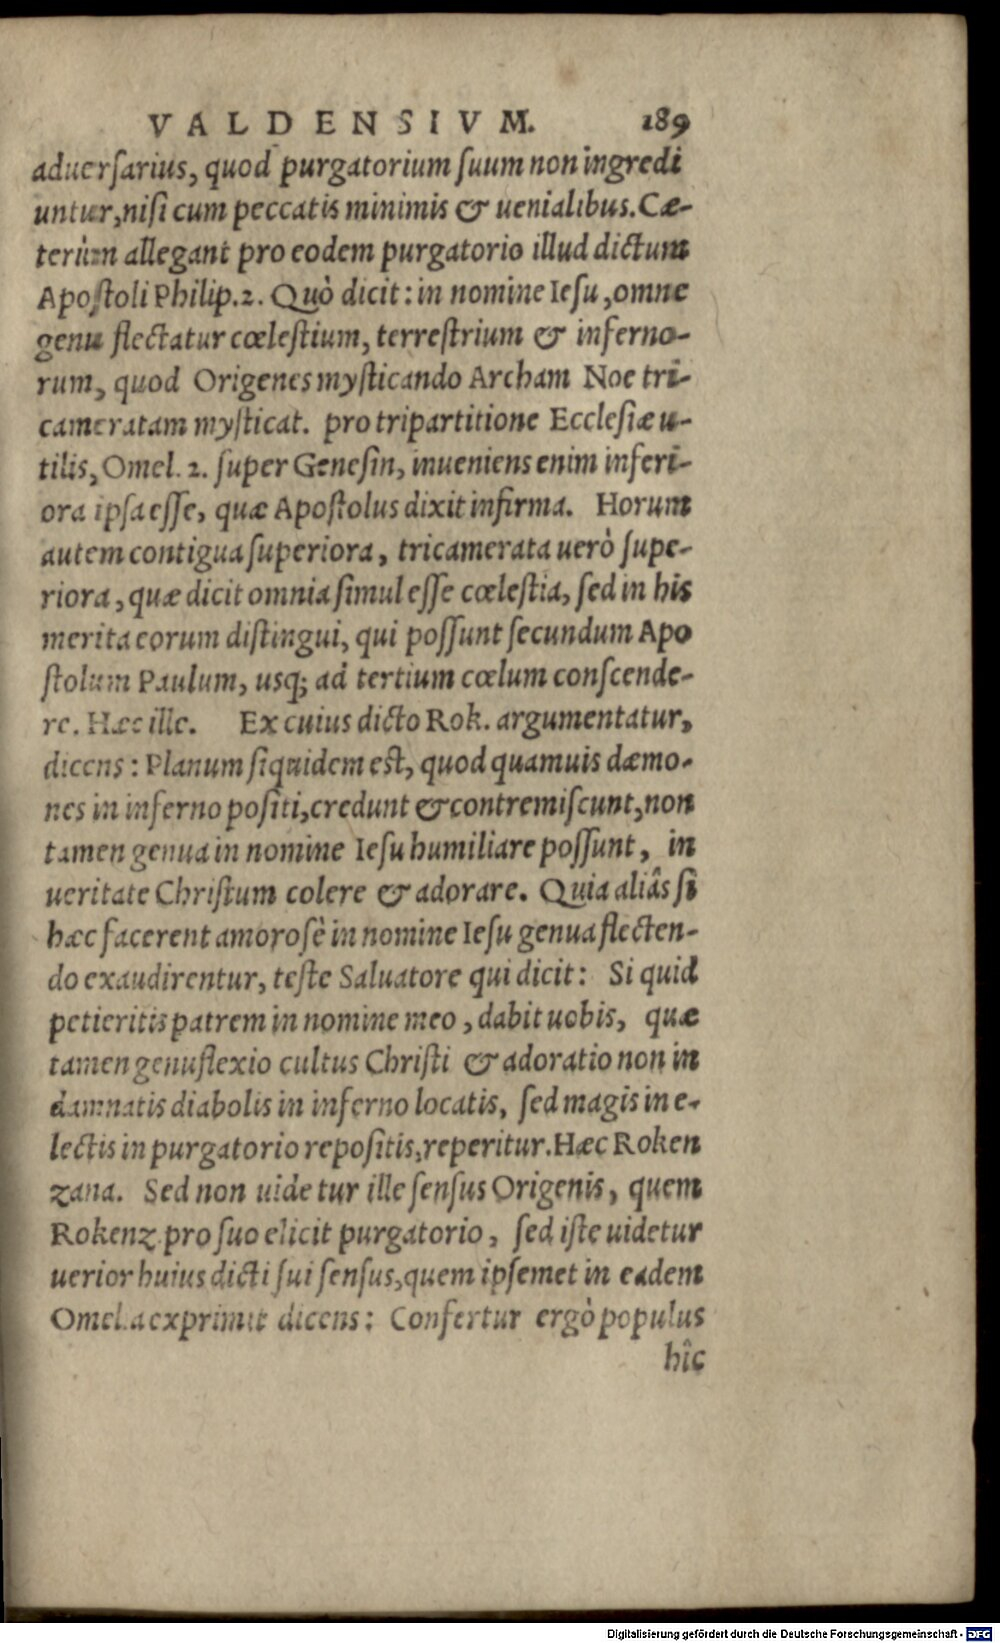 VALDENSIVM. 189
aduerſarius, quod purgatorium ſuum non ingredi
untur, niſi cum peccatis minimis & uenialibus. Cæ-
terùm allegant pro eodem purgatorio illud dictum
Apoſtoli Philip. 2. Quò dicit: in nomine Ieſu, omne
genu flectatur cœleſtium, terreſtrium & inferno-
rum, quod Origenes myſticando Archam Noe tri-
cameratam myſticat. pro tripartitione Eccleſiæ u-
tilis, Omel. 2. ſuper Geneſin, inueniens enim inferi-
ora ipſa eſſe, quæ Apoſtolus dixit infirma. Horum
autem contigua ſuperiora, tricamerata uerò ſupe-
riora, quæ dicit omnia ſimul eſſe cœleſtia, ſed in his
merita eorum diſtingui, qui poſſunt ſecundum Apo
ſtolum Paulum, usq; ad tertium cœlum conſcende-
re. Hæc ille. Ex cuius dicto Rok. argumentatur,
dicens: Planum ſiquidem eſt, quod quamuis dæmo-
nes in inferno poſiti, credunt & contremiſcunt, non
tamen genua in nomine Ieſu humiliare poſſunt, in
ueritate Chriſtum colere & adorare. Quia aliâs ſi
hæc facerent amoroſè in nomine Ieſu genua flecten-
do exaudirentur, teſte Saluatore qui dicit: Si quid
petieritis patrem in nomine meo, dabit uobis, quæ
tamen genuflexio cultus Chriſti & adoratio non in
damnatis diabolis in inferno locatis, ſed magis in e-
lectis in purgatorio repoſitis, reperitur. Hæc Roken
zana. Sed non uidetur ille ſenſus Origenis, quem
Rokenz. pro ſuo elicit purgatorio, ſed iſte uidetur
uerior huius dicti ſui ſenſus, quem ipſemet in eadem
Omel. a exprimit dicens: Confertur ergò populus
hîc
Digitalisierung gefördert durch die Deutsche Forschungsgemeinschaft - DFG